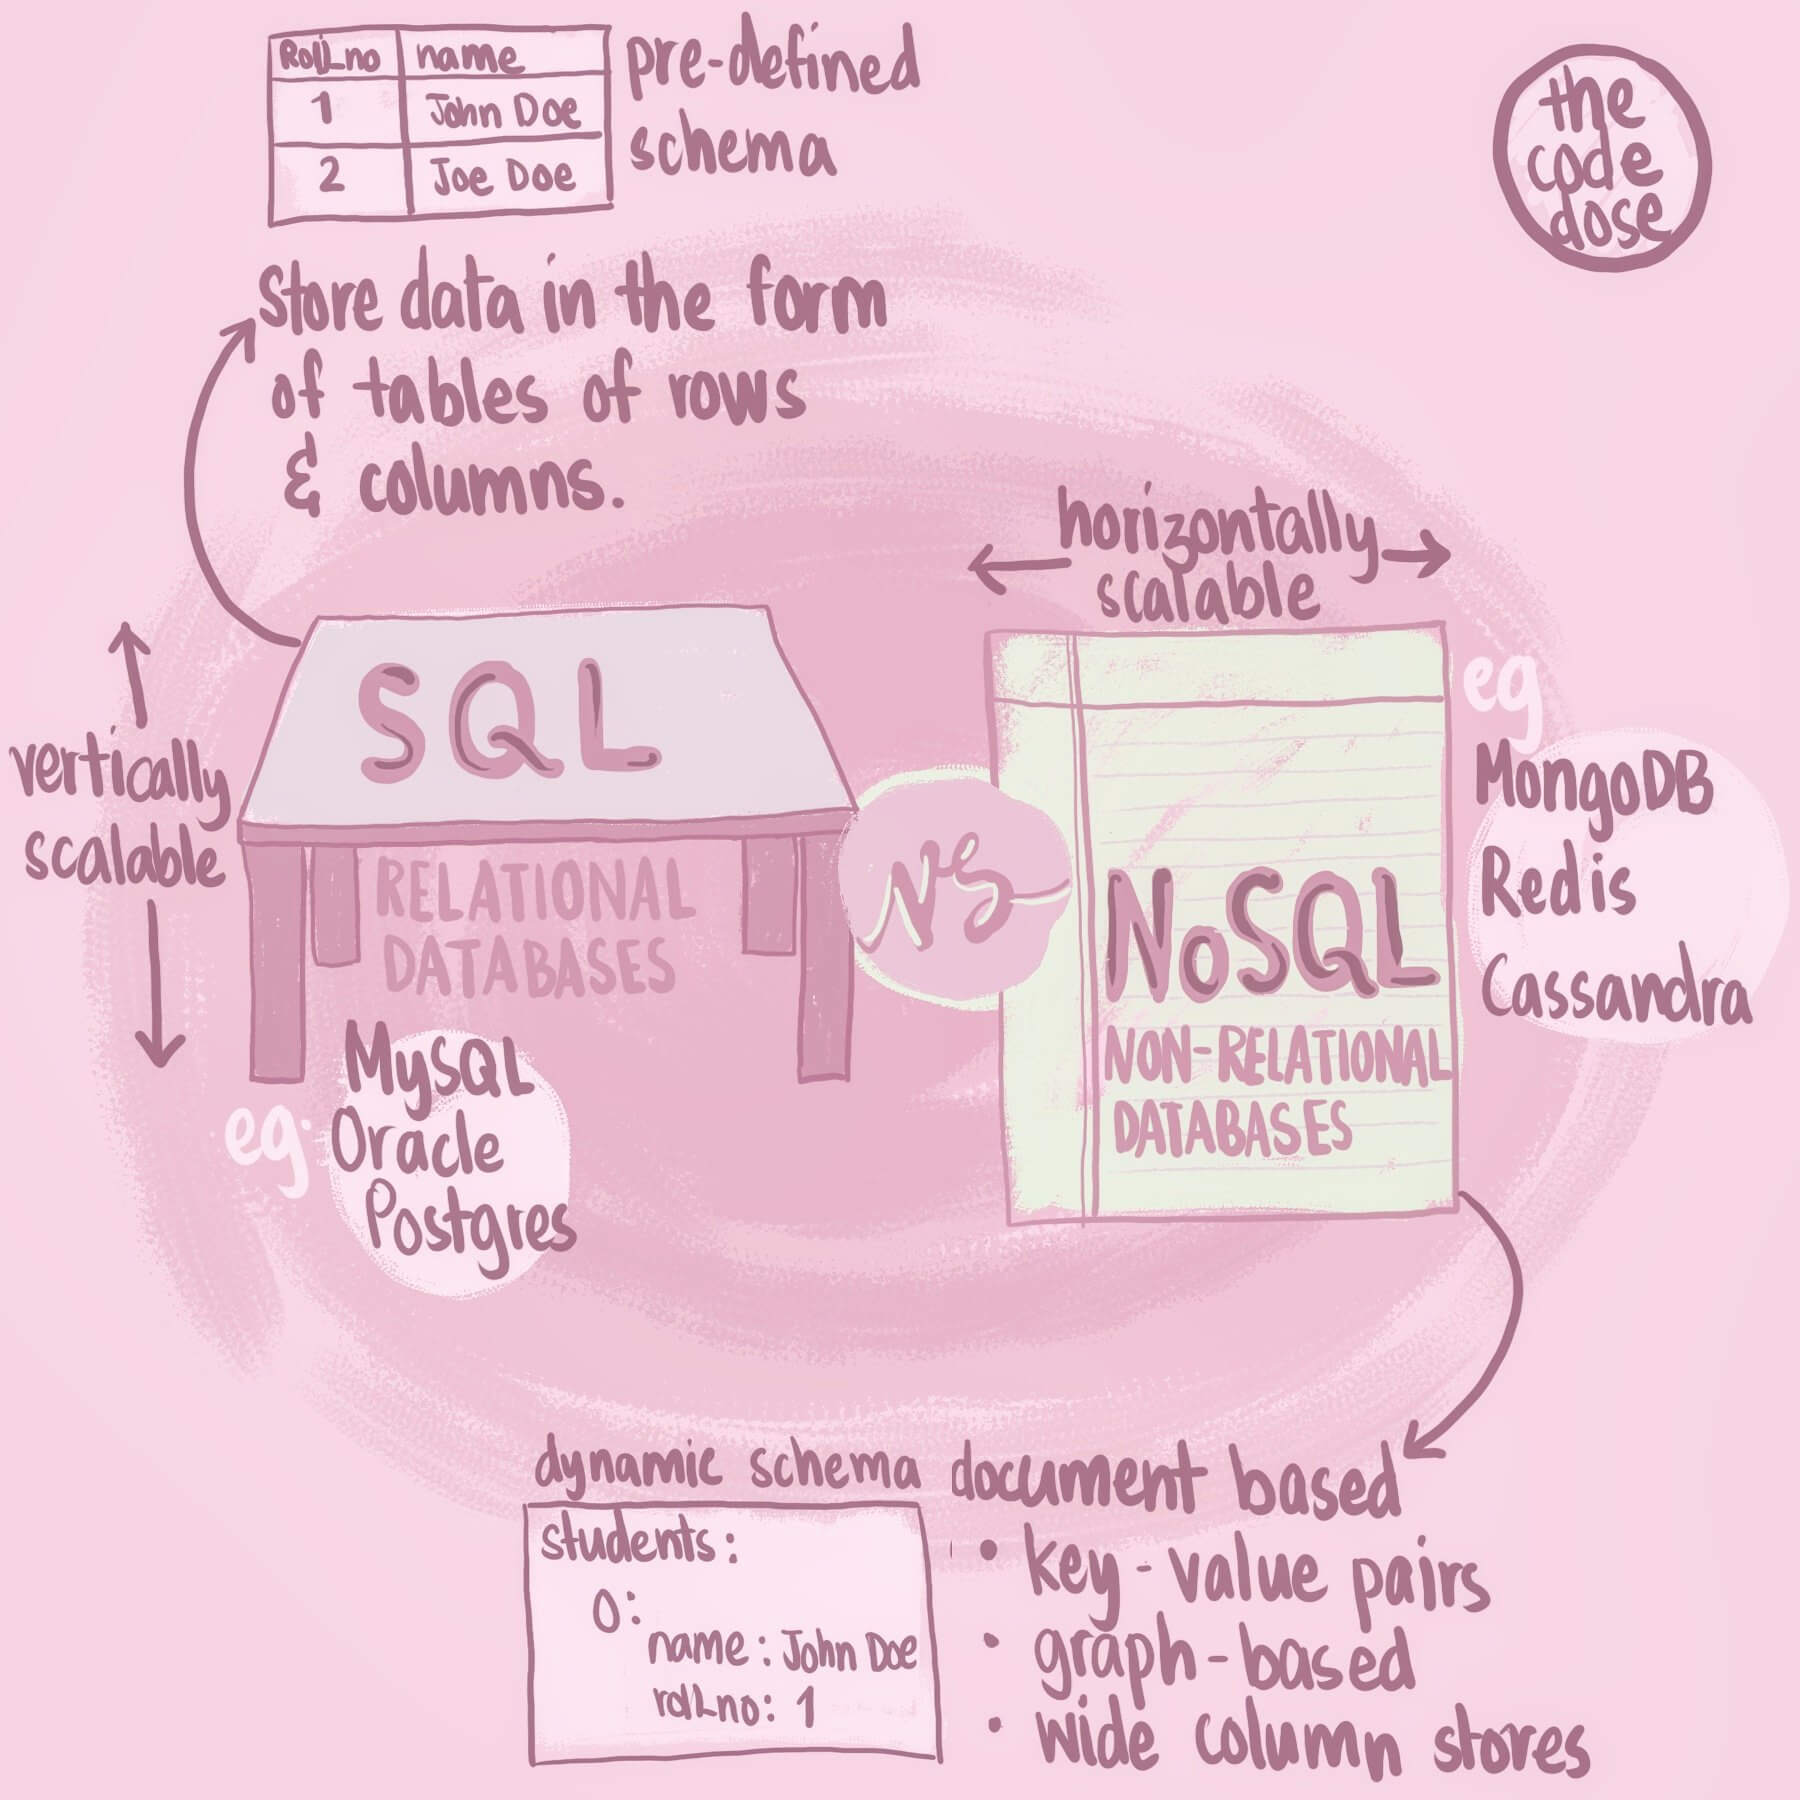 Roll_no name
1 John Doe
2 Joe Doe
pre-defined
schema
the
code
dose
Store data in the form
of tables of rows
& columns.
horizontally
scalable
SQL
vertically
scalable
RELATIONAL
DATABASES
eg.
MySQL
Oracle
Postgres
VS
NoSQL
NON-RELATIONAL
DATABASES
eg
MongoDB
Redis
Cassandra
dynamic schema
students:
0:
name: John Doe
roll_no: 1
document based
• key-value pairs
• graph-based
• wide column stores